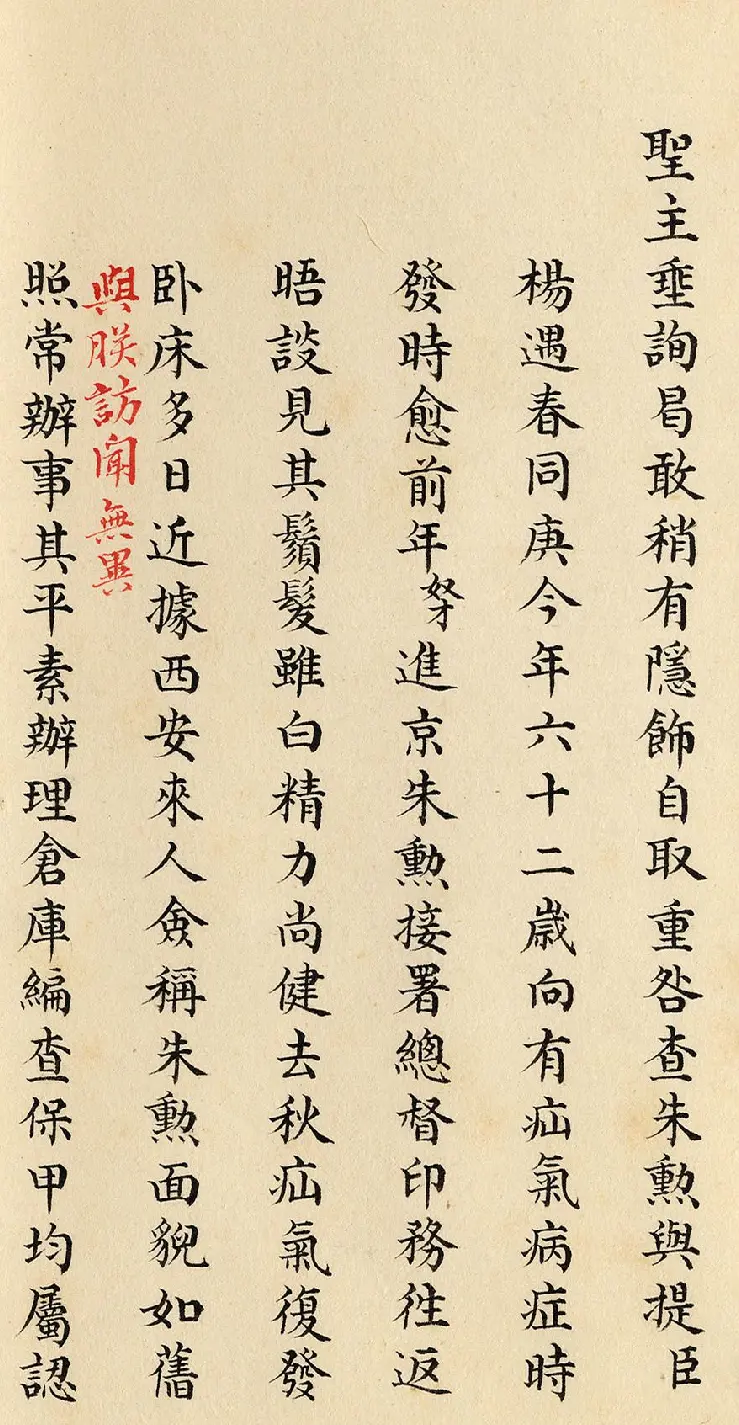 聖主垂詢曷敢稍有隱飾自取重咎查朱勲與提臣
楊遇春同庚今年六十二歲向有疝氣病症時
發時愈前年努進京朱勲接署總督印務往返
晤談見其鬚髮雖白精力尚健去秋疝氣復發
卧床多日近據西安來人僉稱朱勲面貌如舊
與朕訪聞無異
照常辦事其平素辦理倉庫編查保甲均屬認